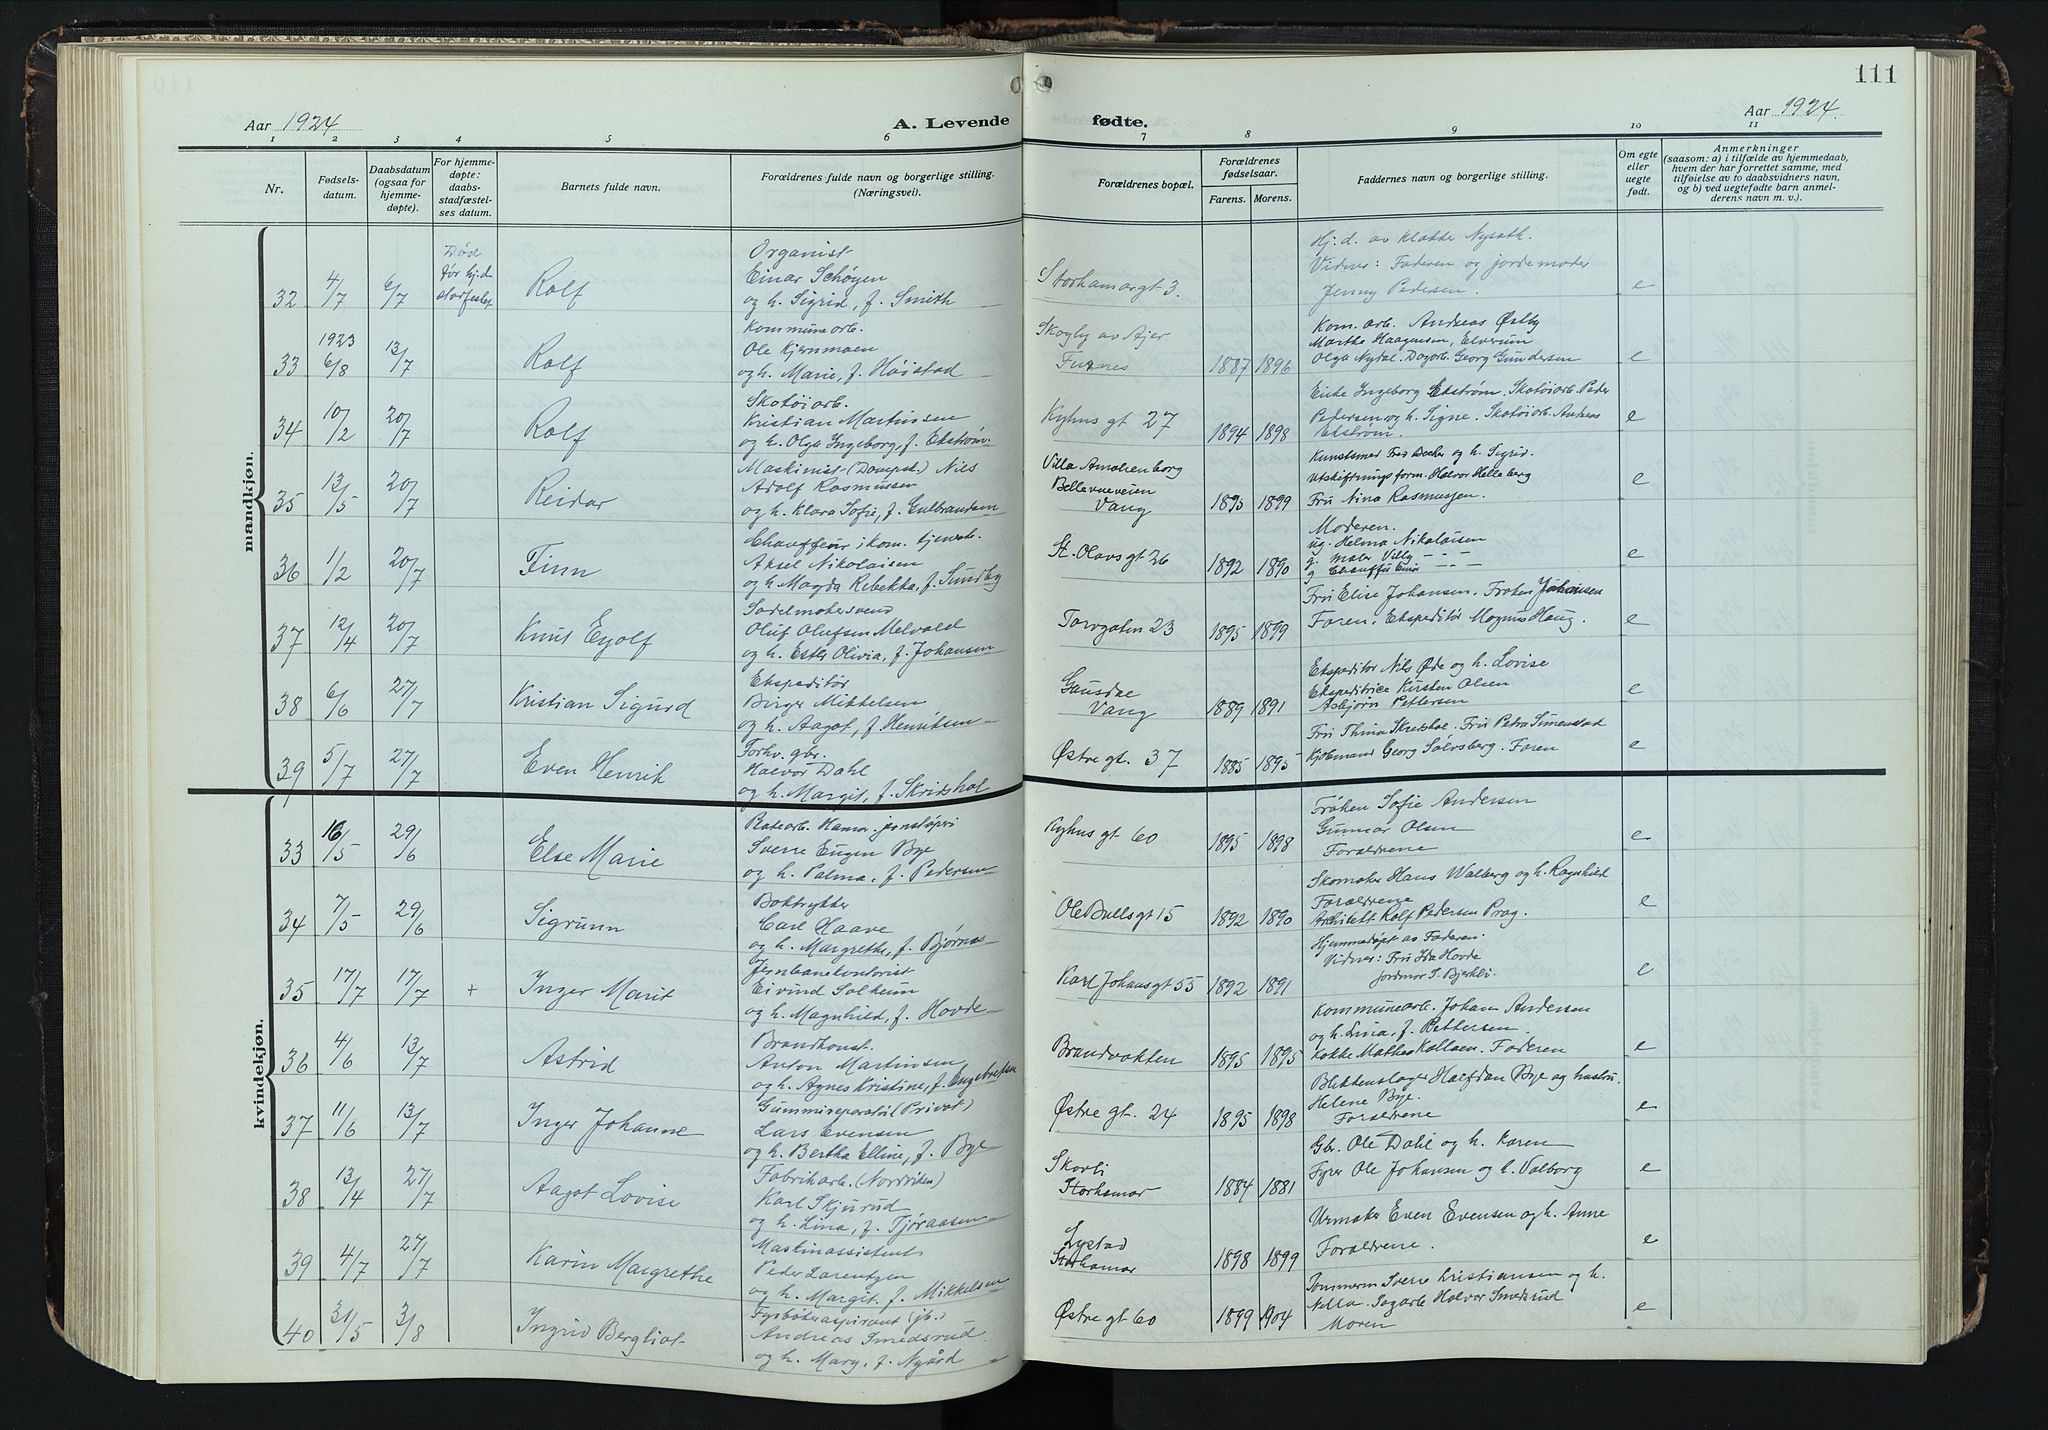 111
Aar 1924
A. Levende
fødte.
Aar 1924
1 2 3 4 5 6 7 8 9 10 11
Nr.
Fødsels-
datum.
Daabsdatum
(ogsaa for
hjemme-
døpte).
For hjemme-
døpte:
daabs-
stadfæstel-
ses datum.
Barnets fulde navn.
Forældrenes fulde navn og borgerlige stilling.
(Næringsvei).
Forældrenes bopæl.
Forældrenes
fødselsaar.
Farens. Morens.
Faddernes navn og borgerlige stilling.
Om egte
eller
uegte
født.
Anmerkninger
(saasom: a) i tilfælde av hjemmedaab,
hvem der har forrettet samme, med
tilføielse av to daabsvidners navn,
og b) ved uegtefødte barn anmel-
derens navn m. v.).
mandkjøn.
32 4/7 6/7 Død
før hj.d.
stadfestet
Rolf
Organist
Einar Schøyen
og h. Sigrid, f. Smith
Storhamargt 3.
Hj. d. av Klokker Nysæth.
Vidner: Faderen og jordemoder
Jenny Pedersen.
e
33 1923
6/8 13/7
Rolf
Kommunearb.
Ole Kjernmoen
og h. Marie, f. Høistad
Skogly av Ajer
Furnes
1887 1896
Kom. arb. Andreas Østby
Martha Haagensen, Elverum
Olga Nytal. Dagarb. Georg Gundersen
e
34 10/2 20/7
Rolf
Skotøiarb.
Kristian Martinsen
og h. Olga Ingeborg, f. Ekstrøm
Kyhus gt 27
1894 1898
Enke Ingeborg Ekstrøm, Skotøiarb. Peder
Pedersen og h. Signe. Skotøiarb. Andreas
Ekstrøm.
e
35 13/5 20/7
Reidar
Maskinist (Dampsk.) Nils
Adolf Rasmussen
og h. Klara Sofie, f. Gulbrandsen
Villa Amalienborg
Bellevueveien
Vang
1895 1899
Kunstsmed Fred Becker og h. Sigrid.
Utskiftningsform. Halvor Helleberg
Fru Nina Rasmussen.
e
36 1/2 20/7
Finn
Chauffeur i kom. tjeneste.
Aksel Nikolaisen
og h. Magda Rebekka, f. Sundby
St. Olavs gt 26
1892 1890
Moderen.
ug. Helma Nikolaisen
g. maler Villy — " —
g. Chauffør Einar — " —
e
37 12/4 20/7
Knut Eyolf
Sadelmakersvend
Oluf Olufsen Melvald
og h. Ester Olivia, f. Johansen
Torvgaten 23
1895 1899
Fru Elise Johansen. Frøken Johansen
Faren. Ekspeditør Magnus Haug.
e
38 6/6 27/7
Kristian Sigurd
Ekspeditør
Birger Mikkelsen
og h. Aagot, f. Henriksen
Gausdal
Vang
1889 1891
Ekspeditør Nils Øde og h. Lovise
Ekspeditrice Kirsten Olsen
Asbjørn Pettersen
e
39 5/7 27/7
Even Henrik
Forhv. gbr.
Halvor Dahl
og h. Margit, f. Skridshol
Østre gt. 37
1885 1895
Fru Thina Skredshol. Fru Petra Simenstad
Kjøbmand Georg Sølvsberg. Faren
e
kvindekjøn.
33 16/5 29/6
Else Marie
Platearb. Hamar jernstøperi
Sverre Eugen Bye
og h. Palma, f. Pedersen
Kyhus gt 60
1895 1898
Frøken Sofie Andersen
Gunnar Olsen
Forældrene
e
34 7/5 29/6
Sigrunn
Boktrykker
Carl Haave
og h. Margrethe, f. Bjørnås
Ole Bullsgt 15
1892 1890
Skomaker Hans Walberg og h. Ragnhild
Forældrene
Architekt Rolf Pedersen Prag.
e
35 17/7 17/7 +
Inger Marit
Jernbanekontorist
Eivind Solheim
og h. Magnhild, f. Hovde
Karl Johans gt 55
1892 1891
Hjemmedøpt av Faderen.
Vidner: Fru Ida Hovde
Jordmor S. Bjerkli.
e
36 4/6 13/7
Astrid
Brandkonst.
Anton Martinsen
og h. Agnes Kristine, f. Engebretsen
Brandvakten
1895 1895
Kommunearb. Johan Andersen
og h. Lina, f. Pettersen.
Kokke Mathea Kollaen. Faderen
e
37 11/6 13/7
Inger Johanne
Gummireparatør (Privat)
Lars Evensen
og h. Bertha Elline, f. Bye
Østre gt. 24
1895 1898
Blikkenslager Halfdan Bye og hustru
Helene Bye.
Forældrene
e
38 13/4 27/7
Aagot Lovise
Fabrikarb. (Nordviken)
Karl Skjurud
og h. Lina, f. Tjøraasen
Skovli
Storhamar
1884 1881
Gbr. Ole Dahl og h. Karen
Fyrb. Ole Johansen og h. Valborg
e
39 4/7 27/7
Karin Margrethe
Maskinassistent
Peder Larentzen
og h. Margit, f. Mikkelsen
Lystad
Storhamar
1898 1899
Urmaker Even Evensen og h. Anne
Forældrene.
e
40 31/5 3/8
Ingrid Bergliot
Fyrbøteraspirant (jb.)
Andreas Smedsrud
og h. Marg, f. Nygård
Østre gt 60
1899 1904
Tømmerm Sverre Kristiansen og h.
Nella. Sagarb Halvor Smedsrud
Moren
e